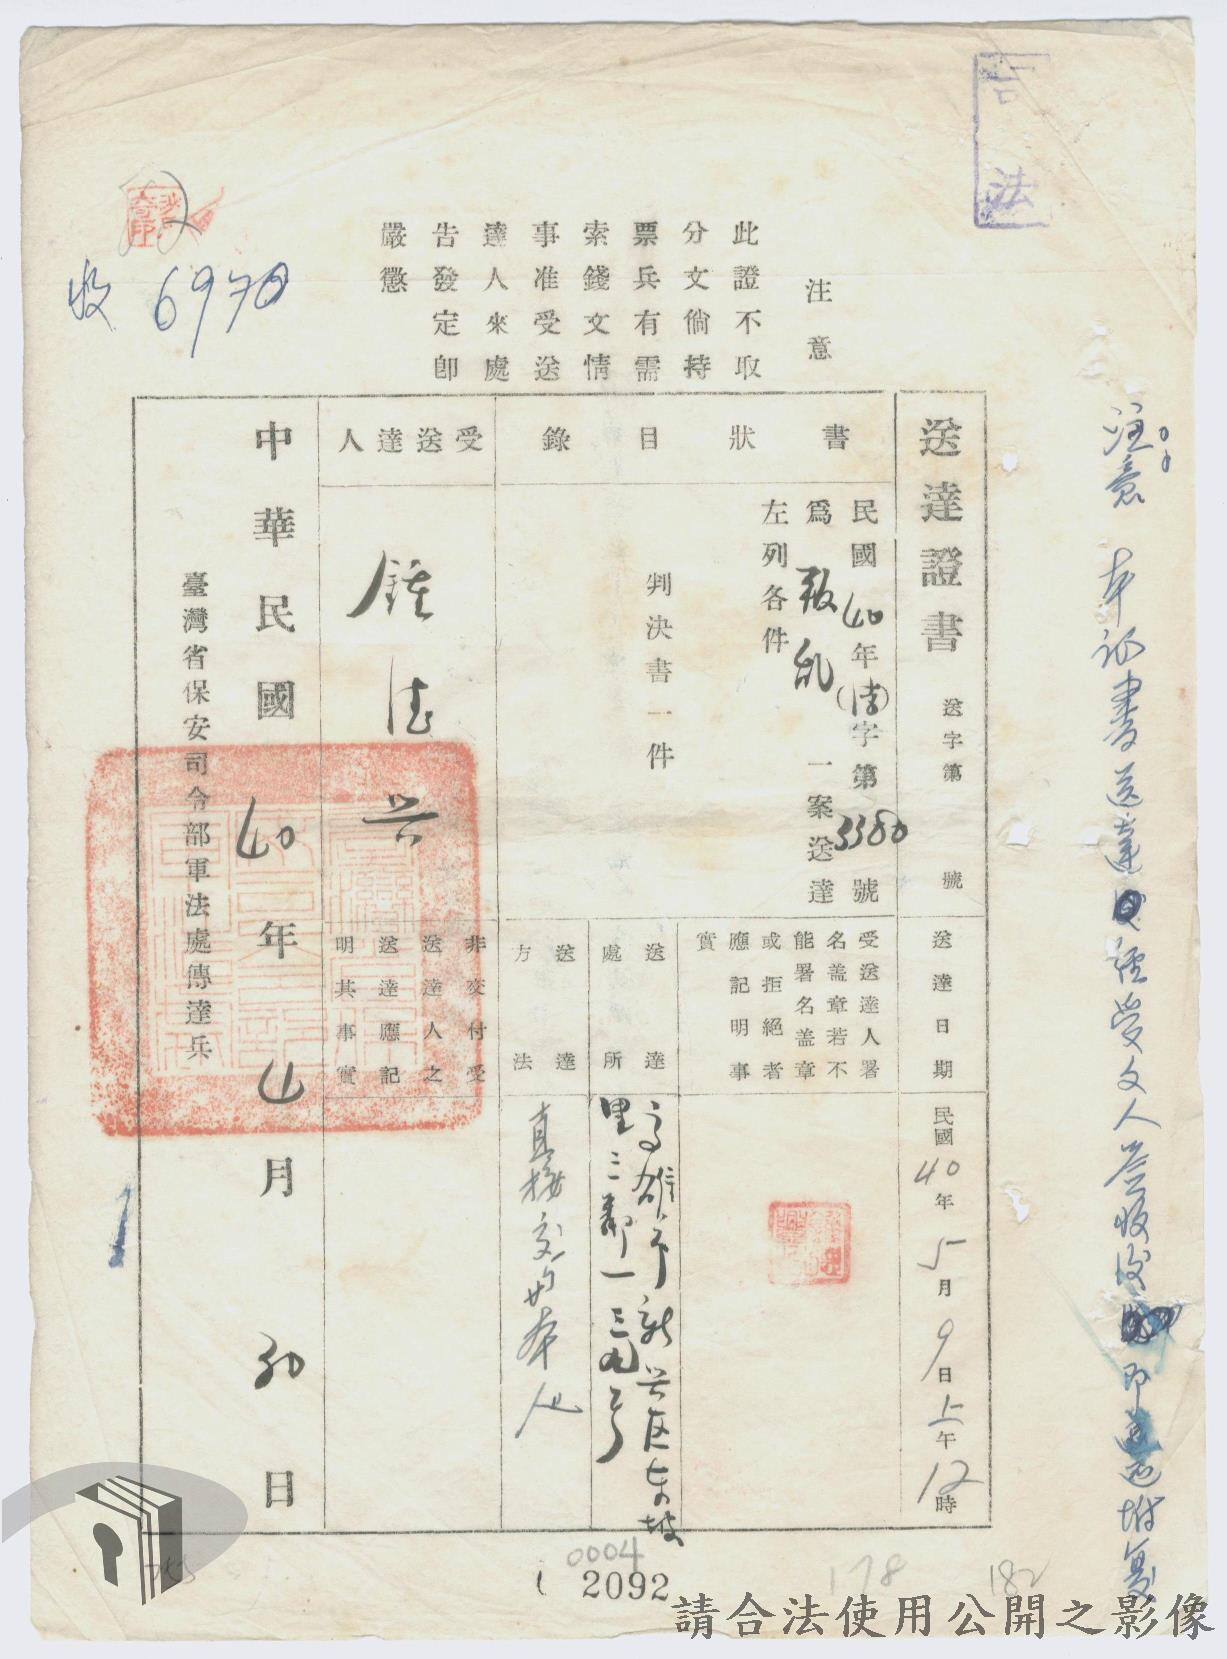 法
收 6970
注意
此證不取
分文倘持
票兵有需
索錢文情
事准受送
達人來處
告發定卽
嚴懲
注意 本証書送達 經受文人簽收後 即送還附复
送達證書 送字第 號
送達日期
民國40年5月9日上午12時
書狀目錄
民國40年(清)字第3380號
爲叛乱一案送達
左列各件
判決書一件
受送達人署
名盖章若不
能署名盖章
或拒絕者
應記明事
實
送達處所
高雄市新兴区東坡
里三鄰一三四号
送達方法
直接交內本人
受送達人
鍾德兴
非交付受
送達人之
送達應記
明其事實
中華民國40年4月30日
臺灣省保安司令部軍法處傳達兵
0004
2092
178
182
請合法使用公開之影像